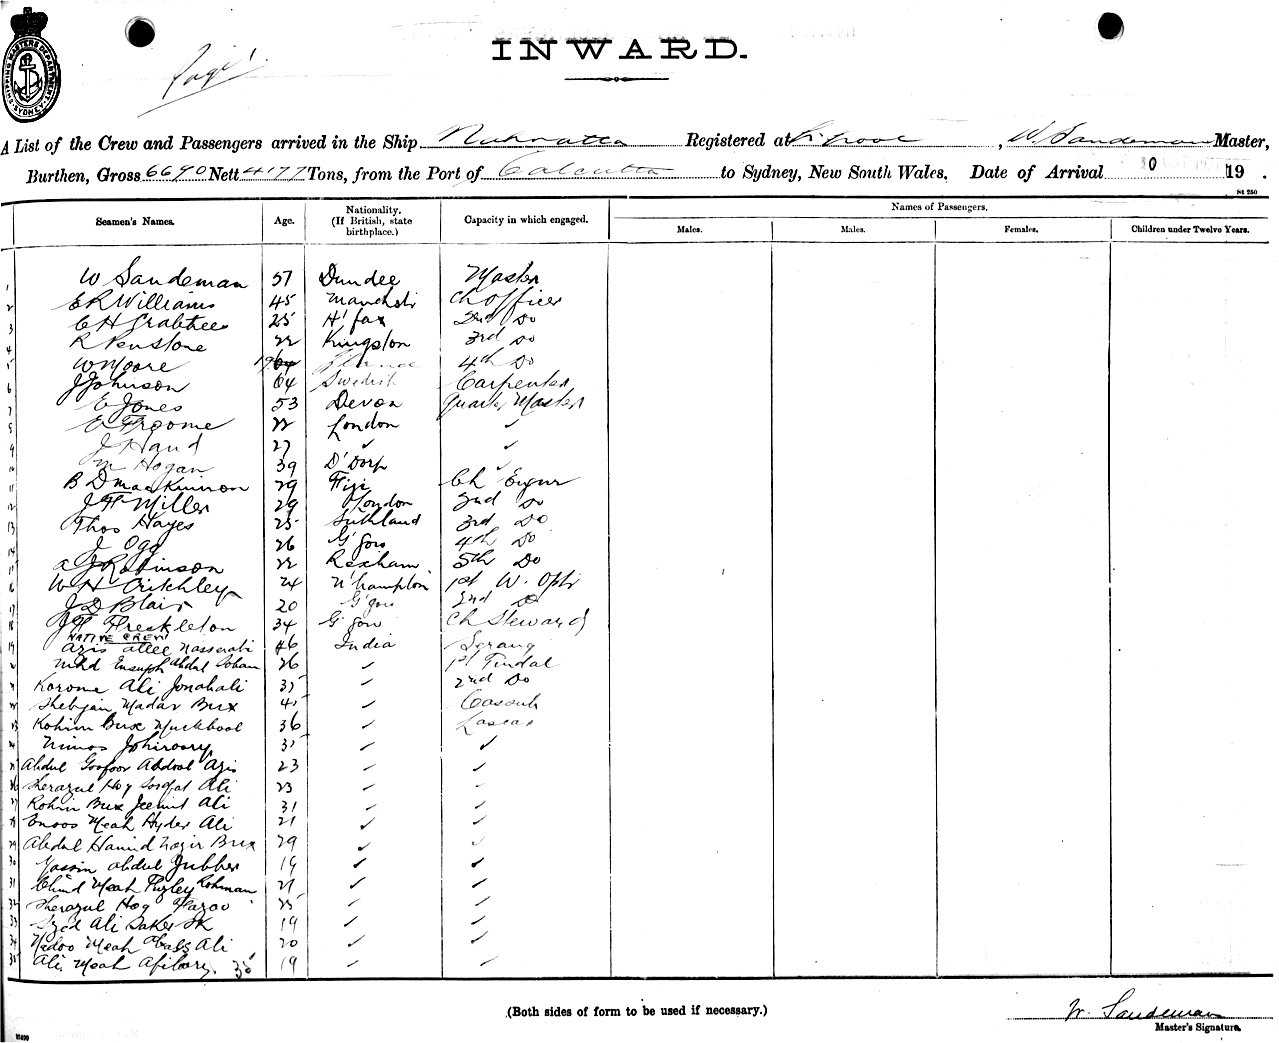 SHIPPING MASTERS DEPARTMENT SYDNEY
Page 1
INWARD.
A List of the Crew and Passengers arrived in the Ship Mahratta Registered at L'pool, W. Sandeman Master,
Burthen, Gross 6690 Nett 4177 Tons, from the Port of Calcutta to Sydney, New South Wales, Date of Arrival 19 .
St 250
Seamen's Names. Age. Nationality. (If British, state birthplace.) Capacity in which engaged. Names of Passengers.
Males. Males. Females. Children under Twelve Years.
1 W Sandeman 57 Dundee Master
2 E R Williams 45 Manchstr Ch Officer
3 C H Crabtree 25 H'fax 2nd Do
4 R Penstone 22 Kingston 3rd Do
5 W Moore 19 4th Do
6 J Johnson 64 Swedish Carpenter
7 E Jones 53 Devon Quarter Master
8 E Froome 22 London ✓
9 J Hand 27 ✓ ✓
10 M Hogan 39 D'Dorp ✓
11 B D MacKinnon 29 Fiji Ch Engnr
12 J H Miller 29 London 2nd Do
13 Thos Hayes 25 3rd Do
14 J Ogg 26 G'gow 4th Do
15 A J Robinson 22 Rexham 5th Do
16 W H Critchley 24 N'hampton 1st W. Optr
17 J D Blair 20 G'gow 2nd Do
18 J H Freckleton 34 G'gow Ch Steward
NATIVE CREW
19 Azis Allee Nasserali 46 India Serang
20 Mhd Abdul 26 ✓ 1st Tindal
21 Korome Ali Jonahali 35 ✓ 2nd Do
22 Shebjan Madar Bux 45 ✓ Cassab
23 Rohim Bux Muckbool 36 ✓ Lascar
24 35 ✓ ✓
25 Abdul Goofoor Abdool Azis 23 ✓ ✓
26 Sherazul Hoq Ali 23 ✓ ✓
27 Rohim Bux Ali 31 ✓ ✓
28 Enoos Meah Hyder Ali 21 ✓ ✓
29 Abdul Hamid Nazir Bux 29 ✓ ✓
30 Yassin Abdul Jubber 19 ✓ ✓
31 Chind Meah Fuzley Rohman 21 ✓ ✓
32 Sherazul Hoq 25 ✓ ✓
33 Syed Ali Baker Sk 19 ✓ ✓
34 Nadoo Meah Ali 20 ✓ ✓
35 Ali Meah 35 19 ✓ ✓
(Both sides of form to be used if necessary.)
W. Sandeman
Master's Signature.